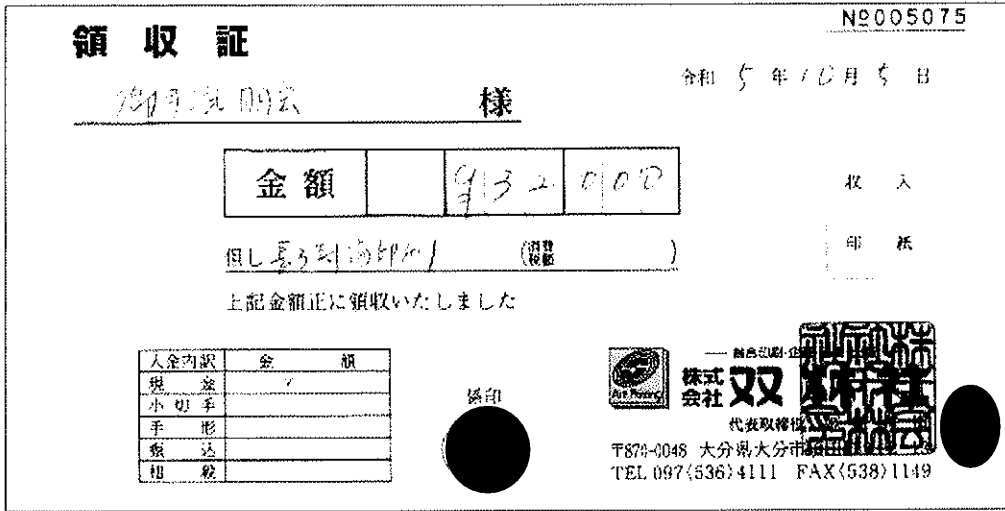 №005075
領収証
令和 5 年 10月 5 日
様
金額 932 000
但し
(消費税額 )
上記金額正に領収いたしました
収入
印紙
入金内訳 金額
現金
小切手
手形
振込
相殺
係印
Art Printing
株式会社 双
代表取締役
〒870-0048 大分県大分市
TEL 097(536)4111 FAX(538)1149